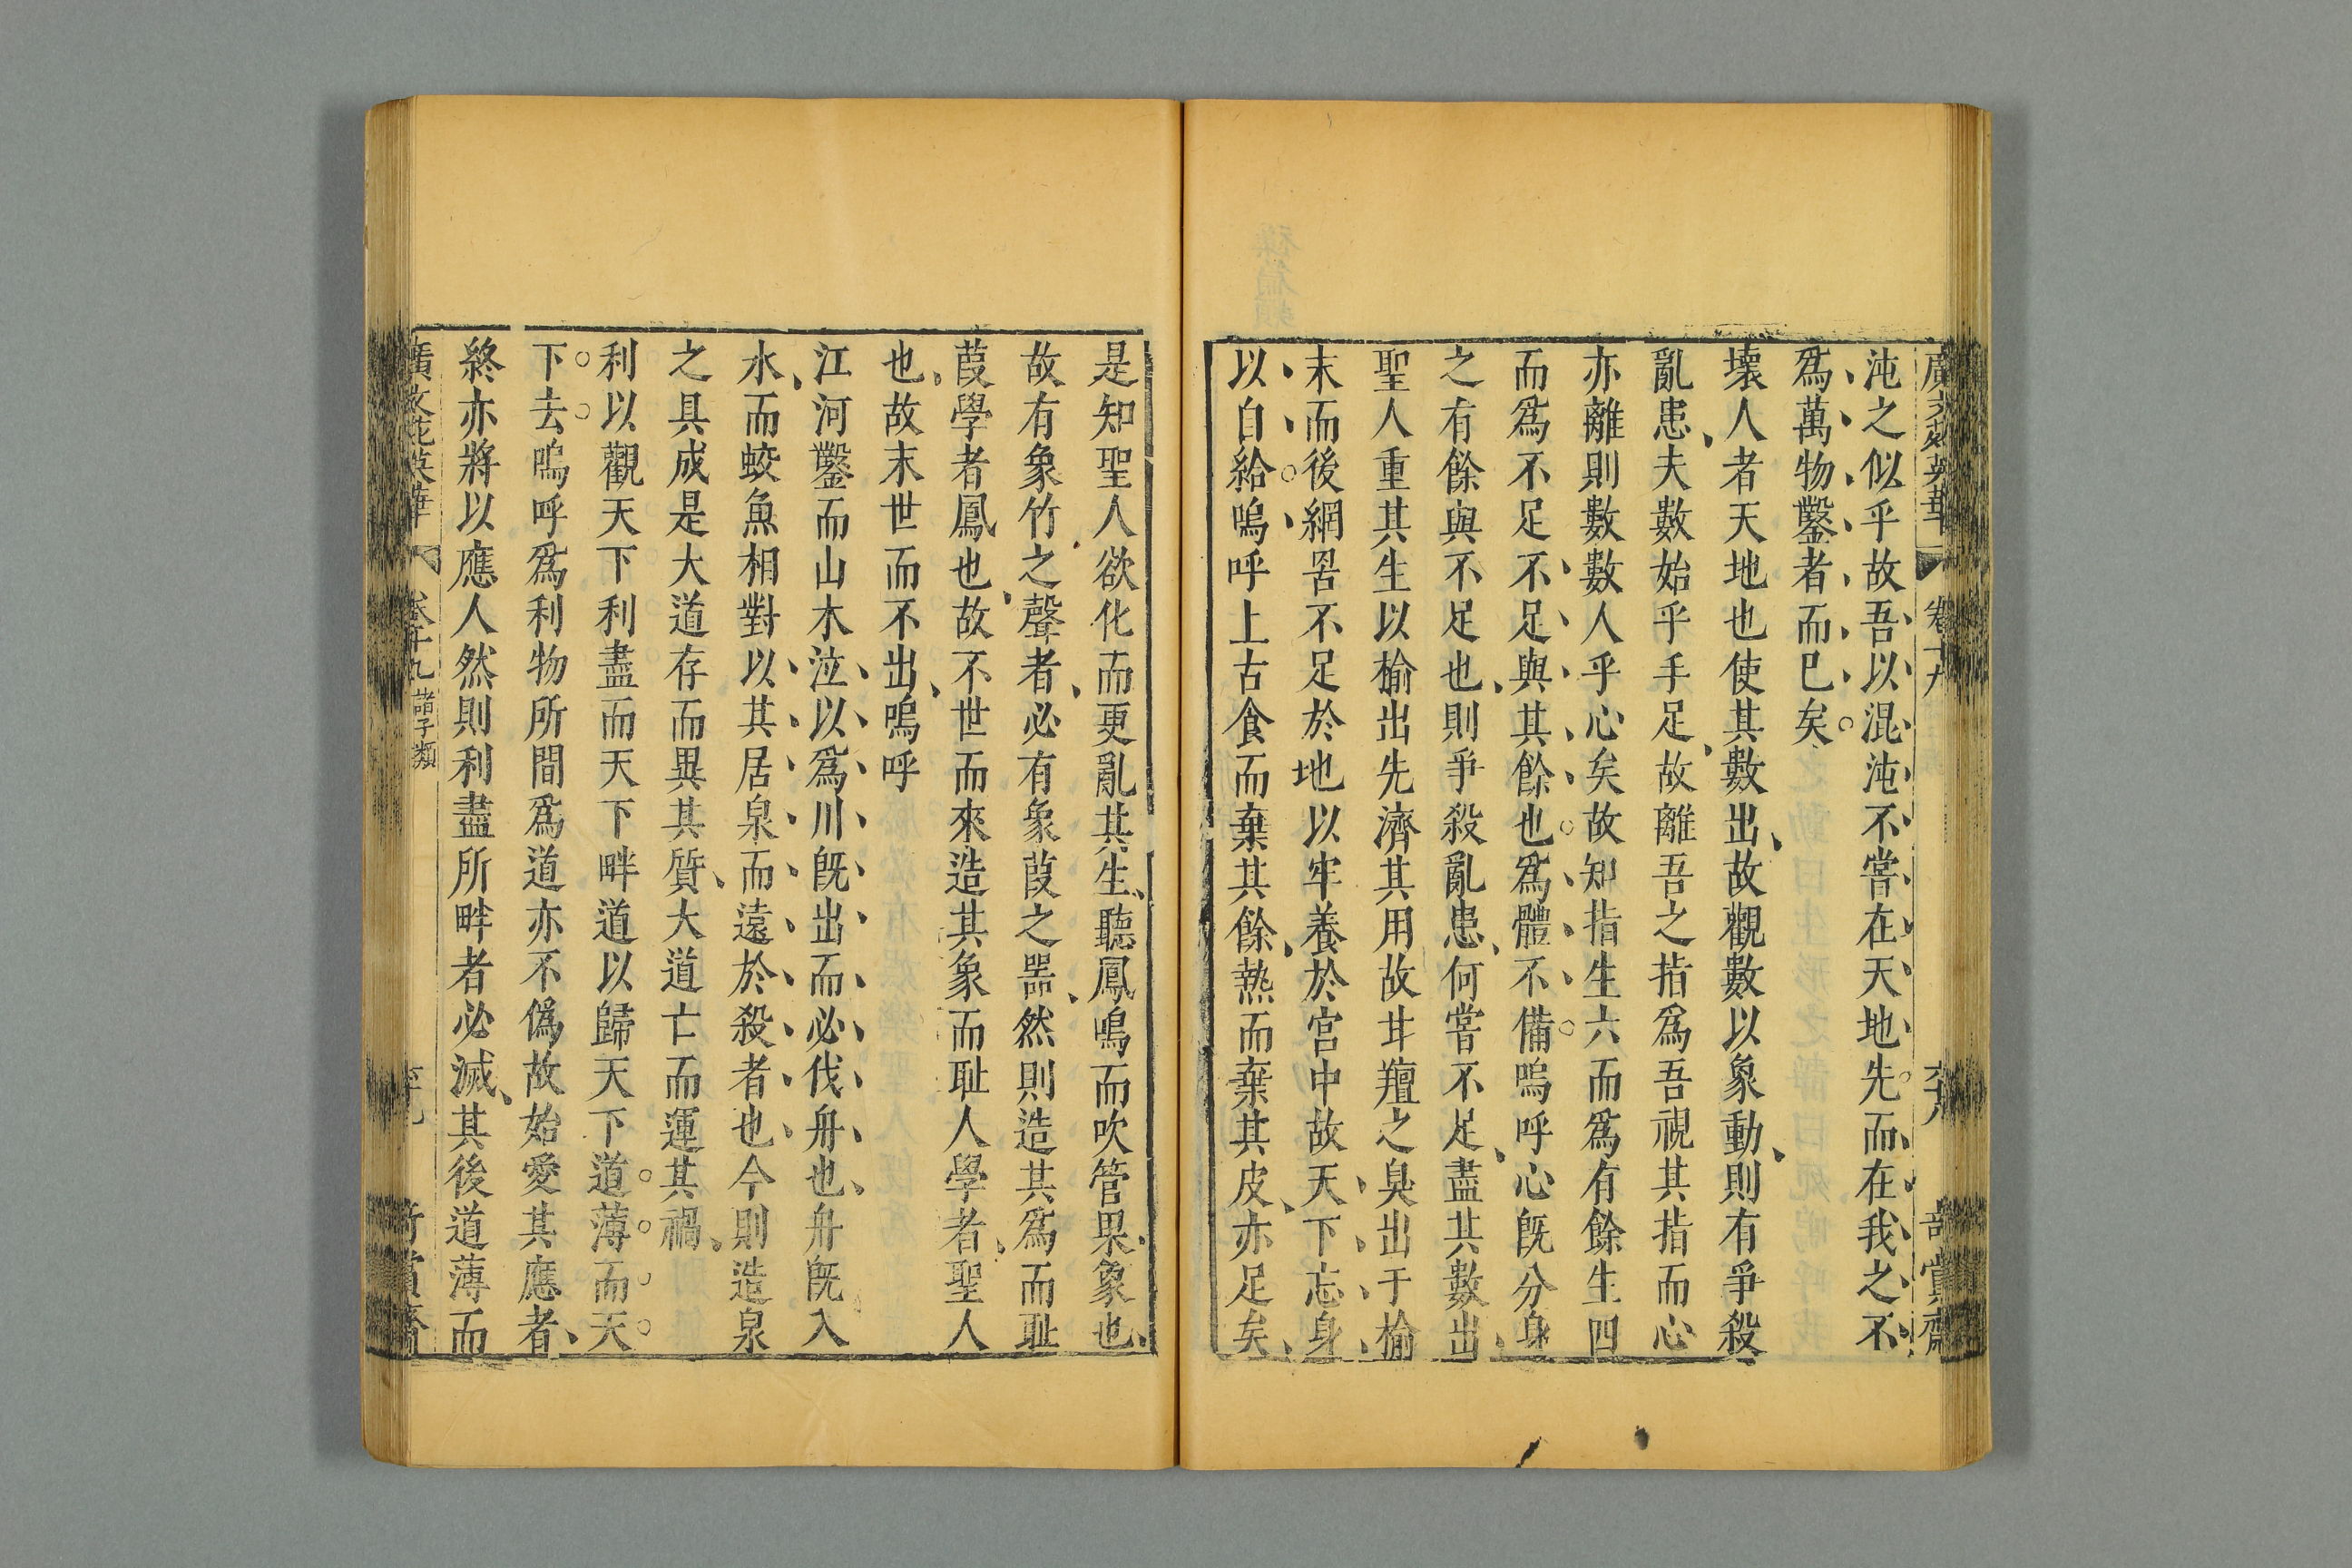 沌之似乎故吾以混沌不嘗在天地先而在我之不
爲萬物鑿者而已矣
壞人者天地也使其數出故觀數以象動則有爭殺
亂患夫數始乎手足故離吾之指爲吾視其指而心
亦離則數數人乎心矣故知指生六而爲有餘生四
而爲不足不足與其餘也爲體不備嗚呼心既分身
之有餘與不足也則爭殺亂患何嘗不足盡其數出
聖人重其生以榆出先濟其用故甘羶之臭出于榆
末而後網罟不足於地以牢養於宮中故天下忘身
以自給嗚呼上古食而棄其餘熱而棄其皮亦足矣
是知聖人欲化而更亂其生聽鳳鳴而吹管果象也
故有象竹之聲者必有象葭之噐然則造其爲而耻
葭學者鳳也故不世而來造其象而耻人學者聖人
也故末世而不出嗚呼
江河鑿而山木泣以爲川旣出而必伐舟也舟旣入
水而蛟魚相對以其居泉而遠於殺者也今則造泉
之具成是大道存而異其質大道亡而運其禍
利以觀天下利盡而天下畔道以歸天下道薄而天
下去嗚呼爲利物所間爲道亦不僞故始愛其應者
終亦將以應人然則利盡所畔者必滅其後道薄而
廣文苑英華 卷十九 諸子類